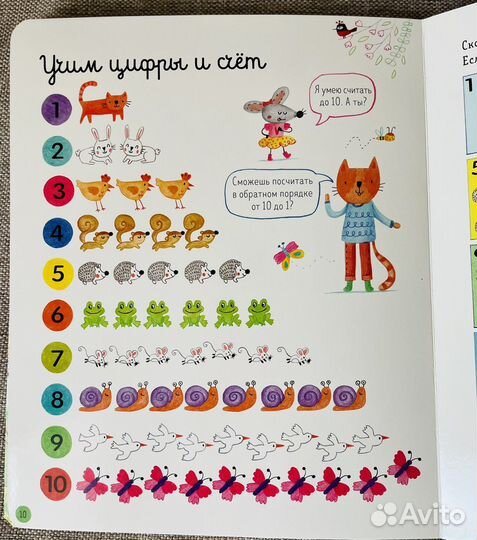 Учим цифры и счёт
Я умею считать
до 10. А ты?
Сможешь посчитать
в обратном порядке
от 10 до 1?
1
2
3
4
5
6
7
8
9
10
10
Ско
Есл
1
5
Avito